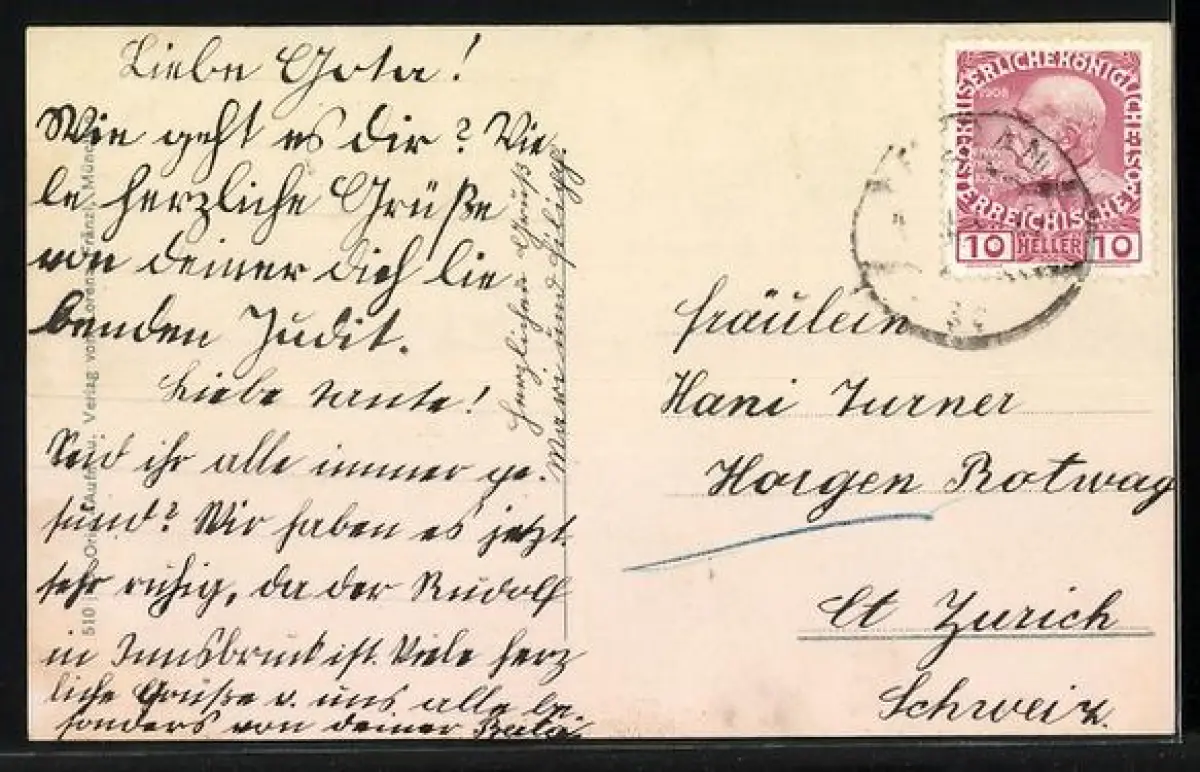 Liebe Gota!
Wie geht es dir? Vie-
le herzliche Grüße
von deiner dich lie
benden Judit.
Liebe Tante!
Seid ihr alle immer ge-
sund? Wir haben es jetzt
sehr ruhig, da der Rudolf
in Innsbruck ist. Viele herz
liche Grüße v. uns alle be
sonders von deiner
Herzlichen Gruß
Mari und
510 Verlag von Lorenz Fränzl, Münc
KAISERLICHE KÖNIGLICHE ÖSTERREICHISCHE
1908
10 HELLER 10
Fräulein
Hani Turner
Horgen Rotwag
Ct Zürich
Schweiz.